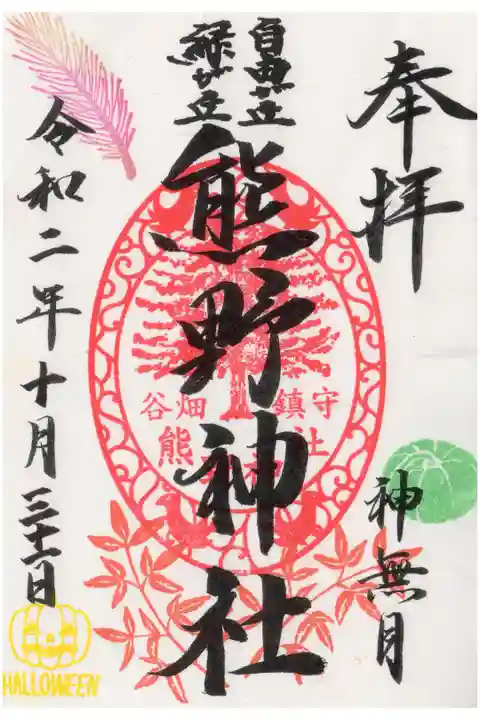 奉拝
神無月
自由が丘
緑が丘
熊野神社
谷畑 鎮守
熊 社
令和二年十月三十一日
HALLOWEEN